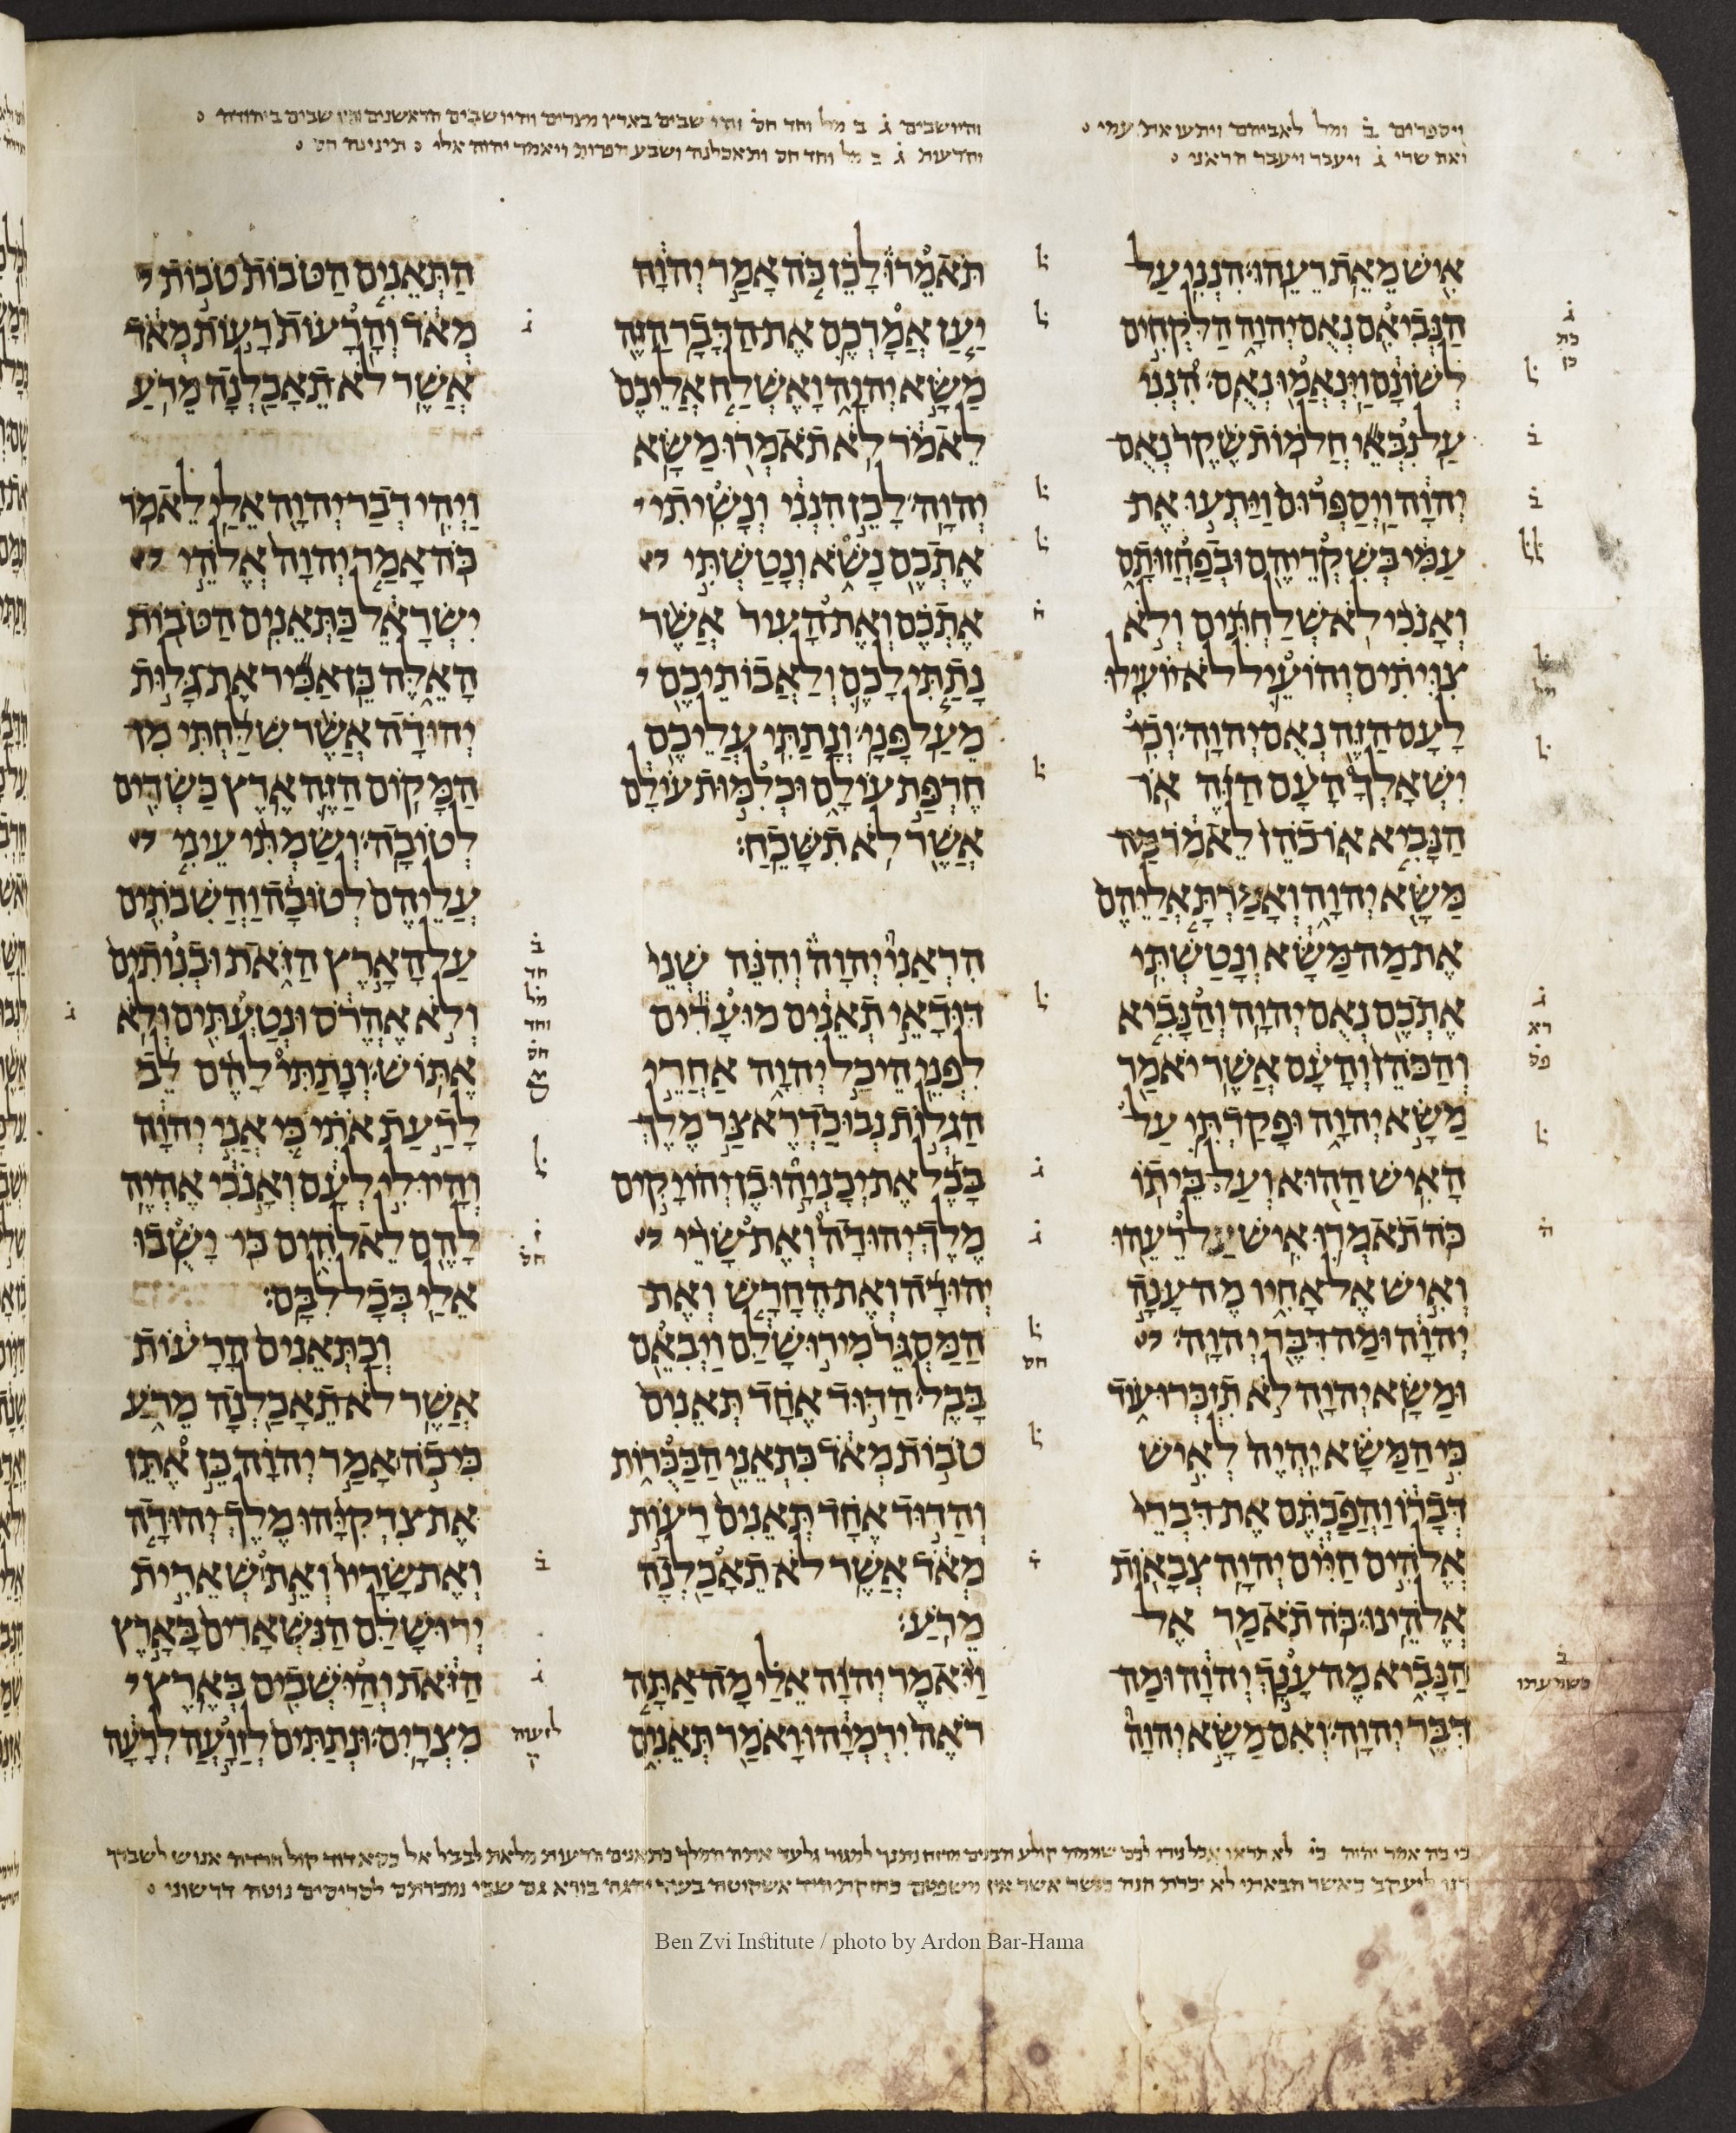 ויספרים בׄ ומל לאביהם ויתעו את עמי
ואת שרי גׄ ויעבר ויעבר הראני
והיושבים גׄ ב מל וחד חס והיושבים בארץ מצרים
אִישׁ מֵאֵת רֵעֵהוּ׃ הִנְנִי עַל
הַנְּבִיאִם נְאֻם יְהוָה הַלֹּקְחִים
לְשׁוֹנָם וַיִּנְאֲמוּ נְאֻם׃ הִנְנִי
עַל נִבְּאֵי חֲלֹמוֹת שֶׁקֶר נְאֻם
יְהוָה וַיְסַפְּרוּם וַיַּתְעוּ אֶת
עַמִּי בְּשִׁקְרֵיהֶם וּבְפַחֲזוּתָם
וְאָנֹכִי לֹא שְׁלַחְתִּים וְלֹא
צִוִּיתִים וְהוֹעֵיל לֹא יוֹעִילוּ
לָעָם הַזֶּה נְאֻם יְהוָה׃ וְכִי
יִשְׁאָלְךָ הָעָם הַזֶּה אוֹ
הַנָּבִיא אוֹ כֹהֵן לֵאמֹר מַה
מַּשָּׂא יְהוָה וְאָמַרְתָּ אֲלֵיהֶם
אֶת מַה מַּשָּׂא וְנָטַשְׁתִּי
אֶתְכֶם נְאֻם יְהוָה׃ וְהַנָּבִיא
וְהַכֹּהֵן וְהָעָם אֲשֶׁר יֹאמַר
מַשָּׂא יְהוָה וּפָקַדְתִּי עַל
הָאִישׁ הַהוּא וְעַל בֵּיתוֹ׃
כֹּה תֹאמְרוּ אִישׁ עַל רֵעֵהוּ
וְאִישׁ אֶל אָחִיו מֶה עָנָה
יְהוָה וּמַה דִּבֶּר יְהוָה׃
וּמַשָּׂא יְהוָה לֹא תִזְכְּרוּ עוֹד
כִּי הַמַּשָּׂא יִהְיֶה לְאִישׁ
דְּבָרוֹ וַהֲפַכְתֶּם אֶת דִּבְרֵי
אֱלֹהִים חַיִּים יְהוָה צְבָאוֹת
אֱלֹהֵינוּ׃ כֹּה תֹאמַר אֶל
הַנָּבִיא מֶה עָנָךְ יְהוָה וּמַה
דִּבֶּר יְהוָה׃ וְאִם מַשָּׂא יְהוָה
תֹּאמֵרוּ לָכֵן כֹּה אָמַר יְהוָה
יַעַן אֲמָרְכֶם אֶת הַדָּבָר הַזֶּה
מַשָּׂא יְהוָה וָאֶשְׁלַח אֲלֵיכֶם
לֵאמֹר לֹא תֹאמְרוּ מַשָּׂא
יְהוָה׃ לָכֵן הִנְנִי וְנָשִׁיתִי
אֶתְכֶם נָשֹׁא וְנָטַשְׁתִּי
אֶתְכֶם וְאֶת הָעִיר אֲשֶׁר
נָתַתִּי לָכֶם וְלַאֲבוֹתֵיכֶם
מֵעַל פָּנָי׃ וְנָתַתִּי עֲלֵיכֶם
חֶרְפַּת עוֹלָם וּכְלִמּוּת עוֹלָם
אֲשֶׁר לֹא תִשָּׁכֵחַ׃
הִרְאַנִי יְהוָה וְהִנֵּה שְׁנֵי
דּוּדָאֵי תְאֵנִים מוּעָדִים
לִפְנֵי הֵיכַל יְהוָה אַחֲרֵי
הַגְלוֹת נְבוּכַדְרֶאצַּר מֶלֶךְ
בָּבֶל אֶת יְכָנְיָהוּ בֶן יְהוֹיָקִים
מֶלֶךְ יְהוּדָה וְאֶת שָׂרֵי
יְהוּדָה וְאֶת הֶחָרָשׁ וְאֶת
הַמַּסְגֵּר מִירוּשָׁלִַם וַיְבִאֵם
בָּבֶל׃ הַדּוּד אֶחָד תְּאֵנִים
טֹבוֹת מְאֹד כִּתְאֵנֵי הַבַּכֻּרוֹת
וְהַדּוּד אֶחָד תְּאֵנִים רָעוֹת
מְאֹד אֲשֶׁר לֹא תֵאָכַלְנָה
מֵרֹעַ׃
וַיֹּאמֶר יְהוָה אֵלַי מָה אַתָּה
רֹאֶה יִרְמְיָהוּ וָאֹמַר תְּאֵנִים
הַתְּאֵנִים הַטֹּבוֹת טֹבוֹת
מְאֹד וְהָרָעוֹת רָעוֹת מְאֹד
אֲשֶׁר לֹא תֵאָכַלְנָה מֵרֹעַ
וַיְהִי דְבַר יְהוָה אֵלַי לֵאמֹר
כֹּה אָמַר יְהוָה אֱלֹהֵי
יִשְׂרָאֵל כַּתְּאֵנִים הַטֹּבוֹת
הָאֵלֶּה כֵּן אַכִּיר אֶת גָּלוּת
יְהוּדָה אֲשֶׁר שִׁלַּחְתִּי מִן
הַמָּקוֹם הַזֶּה אֶרֶץ כַּשְׂדִּים
לְטוֹבָה׃ וְשַׂמְתִּי עֵינִי
עֲלֵיהֶם לְטוֹבָה וַהֲשִׁבֹתִים
עַל הָאָרֶץ הַזֹּאת וּבְנִיתִים
וְלֹא אֶהֱרֹס וּנְטַעְתִּים וְלֹא
אֶתּוֹשׁ׃ וְנָתַתִּי לָהֶם לֵב
לָדַעַת אֹתִי כִּי אֲנִי יְהוָה
וְהָיוּ לִי לְעָם וְאָנֹכִי אֶהְיֶה
לָהֶם לֵאלֹהִים כִּי יָשֻׁבוּ
אֵלַי בְּכָל לִבָּם׃
וְכַתְּאֵנִים הָרָעוֹת
אֲשֶׁר לֹא תֵאָכַלְנָה מֵרֹעַ
כִּי כֹה אָמַר יְהוָה כֵּן אֶתֵּן
אֶת צִדְקִיָּהוּ מֶלֶךְ יְהוּדָה
וְאֶת שָׂרָיו וְאֵת שְׁאֵרִית
יְרוּשָׁלִַם הַנִּשְׁאָרִים בָּאָרֶץ
הַזֹּאת וְהַיֹּשְׁבִים בְּאֶרֶץ
מִצְרָיִם׃ וּנְתַתִּים לְזַוֲעָה לְרָעָה
Ben Zvi Institute / photo by Ardon Bar-Hama